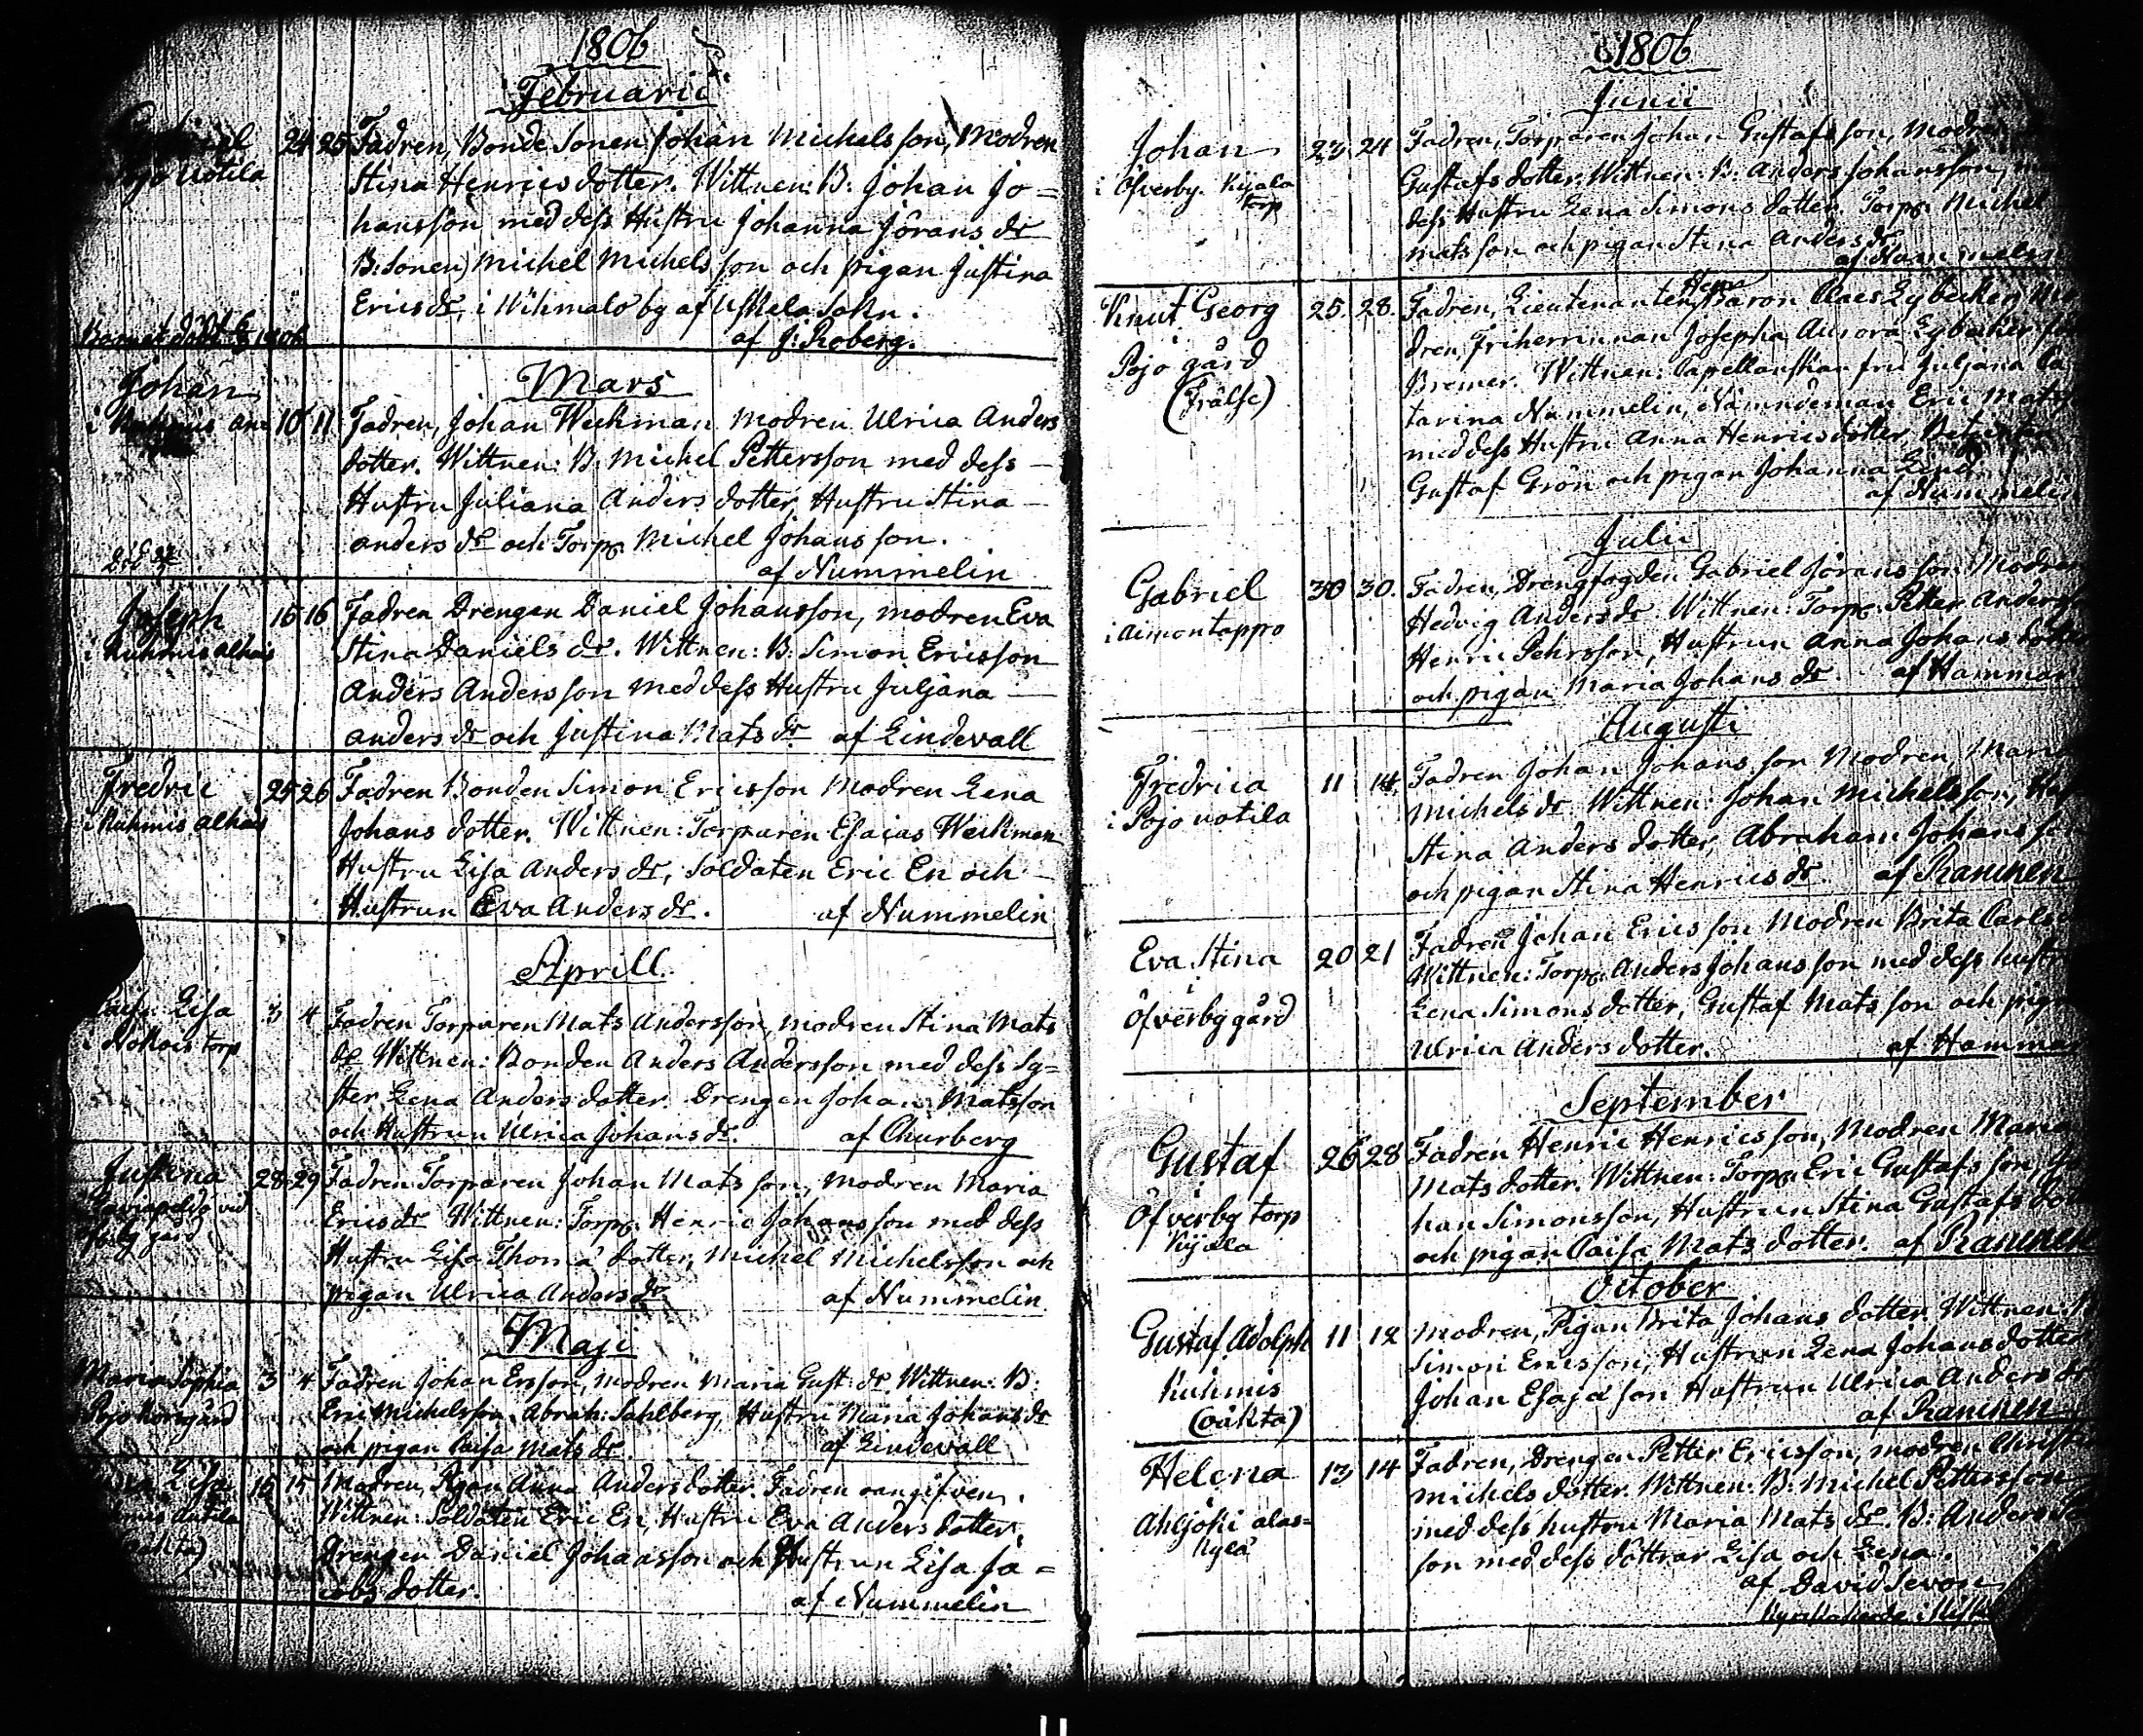 1806
Februarii
Uotila 24 25 Fadren, Bonde Sonen Johan Michelsson, Modren
Stina Henricsdotter. Wittnen: B: Johan Jo=
hansson med dess Hustru Johanna Jörans dr
B: Sonen Michel Michelsson och pigan Justina
Ericsdr, i Wihmalo by af Uskela Sokn.
af J: Roberg.
Barnet dödt 1806
Mars
Johan
i 10 11 Fadren, Johan Weckman Modren Ulrica Anders
dotter. Wittnen: B. Michel Pettersson med dess
Hustru Juliana Anders dotter, Hustru Stina
Anders dr och Torp. Michel Johansson.
af Nummelin
Joseph 15 16 Fadren Drengen Daniel Johansson, modren Eva
i Kuhmis alhais Stina Daniels dr. Wittnen: B: Simon Ericsson
Anders Andersson med dess Hustru Juljana
Anders dr och Justina Mats dr. af Lindevall
Fredric 25 26 Fadren Bonden Simon Ericsson Modren Lena
i Kuhmis alhais Johans dotter. Wittnen: Torparen Esaias Weckman
Hustru Lisa Anders dr, Soldaten Eric En och
Hustrun Eva Anders dr. af Nummelin
Aprill
Caisa Lisa 3 4 Fadren Torparen Mats Andersson, modren Stina Mats
i torp dr Wittnen: Bonden Anders Andersson med dess Sy=
ster Lena Andersdotter. Drengen Johan Matsson
och Hustrun Ulrica Johans dr. af Churberg
Justina 28 29 Fadren Torparen Johan Matsson, modren Maria
vid Ericsdr Wittnen: Torp. Henric Johansson med dess
gård Hustru Lisa Thoma dotter, Michel Michelsson och
pigan Ulrica Anders dr. af Nummelin
Maji
Maria Sophia 3 4 Fadren Johan Ersson, modren Maria Gust: dr. Wittnen: B:
Pojo Eric Michelsson, Abrah: Sahlberg, Hustru Maria Johans dr
och pigan Caisa Mats dr af Lindevall
Lisa 15 Modren, Pigan Anna Anders dotter. Fadren oangifven.
Antila Wittnen: Soldaten Eric En, Hustru Eva Anders dotter,
Drengen Daniel Johansson och Hustrun Lisa Ja=
cobs dotter. af Nummelin
1806
Junii
Johan 23 24 Fadren, Torparen Johan Gustafsson, Modren
i Öfverby Kyala Gustafs dotter, Wittnen: B: Anders Johansson,
torp dess Hustru Lena Simons dotter. Torp. Michel
Matsson och pigan Stina Anders dr.
af Nummelin
Knut Georg 25 28 Fadren, Lieutenanten Herr Baron Claes Lybecker,
Pojo gård dren, Friherrinnan Josepha Aurora Lybecker
(Frälse) Bremer. Wittnen: Capellanskan fru Juljana Ca
tarina Nummelin, Nämndeman Eric Mats
med dess Hustru Anna Henricsdotter,
Gustaf Grön och pigan Johanna
af Nummelin
Julii
Gabriel 30 30. Fadren, Drengfogden Gabriel Jöransson Modren
i Aimontappo Hedvig Anders dr Wittnen: Torp. Petter Anders
Henric Pehrsson, Hustrun Anna Johans dotter
och pigan Maria Johans dr. af Hammar
Augusti
Fredrica 11 14 Fadren Johan Johansson Modren, Maria
i Pojo uotila Michels dr. Wittnen: Johan Michelsson,
Stina Anders dotter, Abraham Johansson
och pigan Stina Henrics dr. af Raminen
Eva Stina 20 21 Fadren Johan Ericsson Modren Brita Carls
i Wittnen: Torp. Anders Johansson med dess hustru
Öfverby gård Lena Simons dotter, Gustaf Matsson och pigan
Ulrica Anders dotter. af Hammar
September
Gustaf 26 28 Fadren Henric Henricsson, Modren Maria
Mats dotter. Wittnen: Torp. Eric Gustafsson, Jo
Öfverby torp han Simonsson, Hustrun Stina Gustafs dotter
Kyala och pigan Caisa Mats dotter. af Raminen
October
Gustaf Adolph 11 12 Modren, Pigan Brita Johans dotter. Wittnen
Kuhmis Simon Ericsson, Hustrun Lena Johans dotter
(oäkta) Johan Esajasson Hustrun Ulrica Anders dr
af Raminen
Helena 13 14 Fadren, Drengen Petter Ericsson, modren Christ
Michels dotter. Wittnen: B: Michel Pettersson
Ahljoki alas= med dess hustru Maria Mats dr. B: Anders
kylä son med dess döttrar Lisa och Lena.
af David Sevon